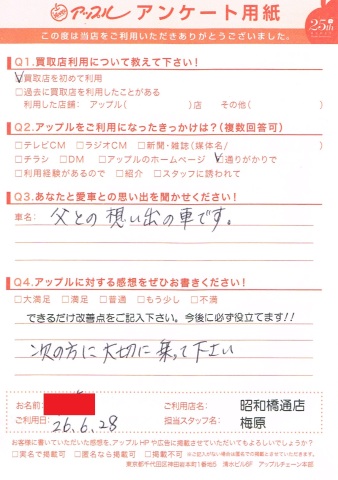 アップル アンケート用紙
25th
この度は当店をご利用いただきありがとうございました。
Q1.買取店利用について教えて下さい!
☑買取店を初めて利用
□過去に買取店を利用したことがある
利用した店舗: アップル( )店 その他( )
Q2.アップルをご利用になったきっかけは?(複数回答可)
□テレビCM □ラジオCM □新聞・雑誌(媒体名/ )
□チラシ □DM □アップルのホームページ ☑通りがかりで
□利用経験があるので □紹介 □スタッフに誘われて
Q3.あなたと愛車との思い出を聞かせください!
車名: 父との想い出の車です。
Q4.アップルに対する感想をぜひお書きください!
□大満足 □満足 □普通 □もう少し □不満
できるだけ改善点をご記入下さい。今後に必ず役立てます!!
次の方に大切に乗って下さい
お名前:
ご利用店名: 昭和橋通店
ご利用日: 26.6.28
担当スタッフ名: 梅原
お客様に書いていただいた感想を、アップルHPや広告に掲載させていただいてもよろしいでしょうか?
□実名で掲載可 □匿名なら掲載可 □掲載不可 ※ご記入がない場合は匿名での掲載とさせていただきます。
東京都千代田区神田岩本町1番地5 清水ビル6F アップルチェーン本部